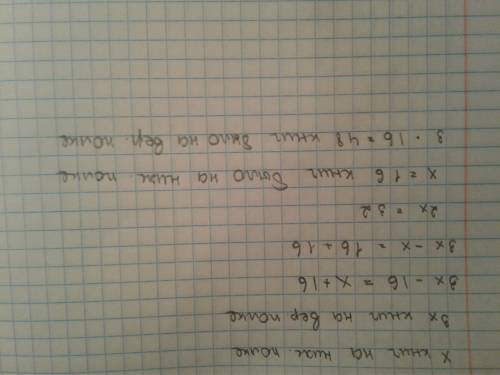 x книг на ниж. полке
3x книг на вер полке
3x - 16 = x + 16
3x - x = 16 + 16
2x = 32
x = 16 книг было на ниж. полке
3 · 16 = 48 книг было на вер. полке